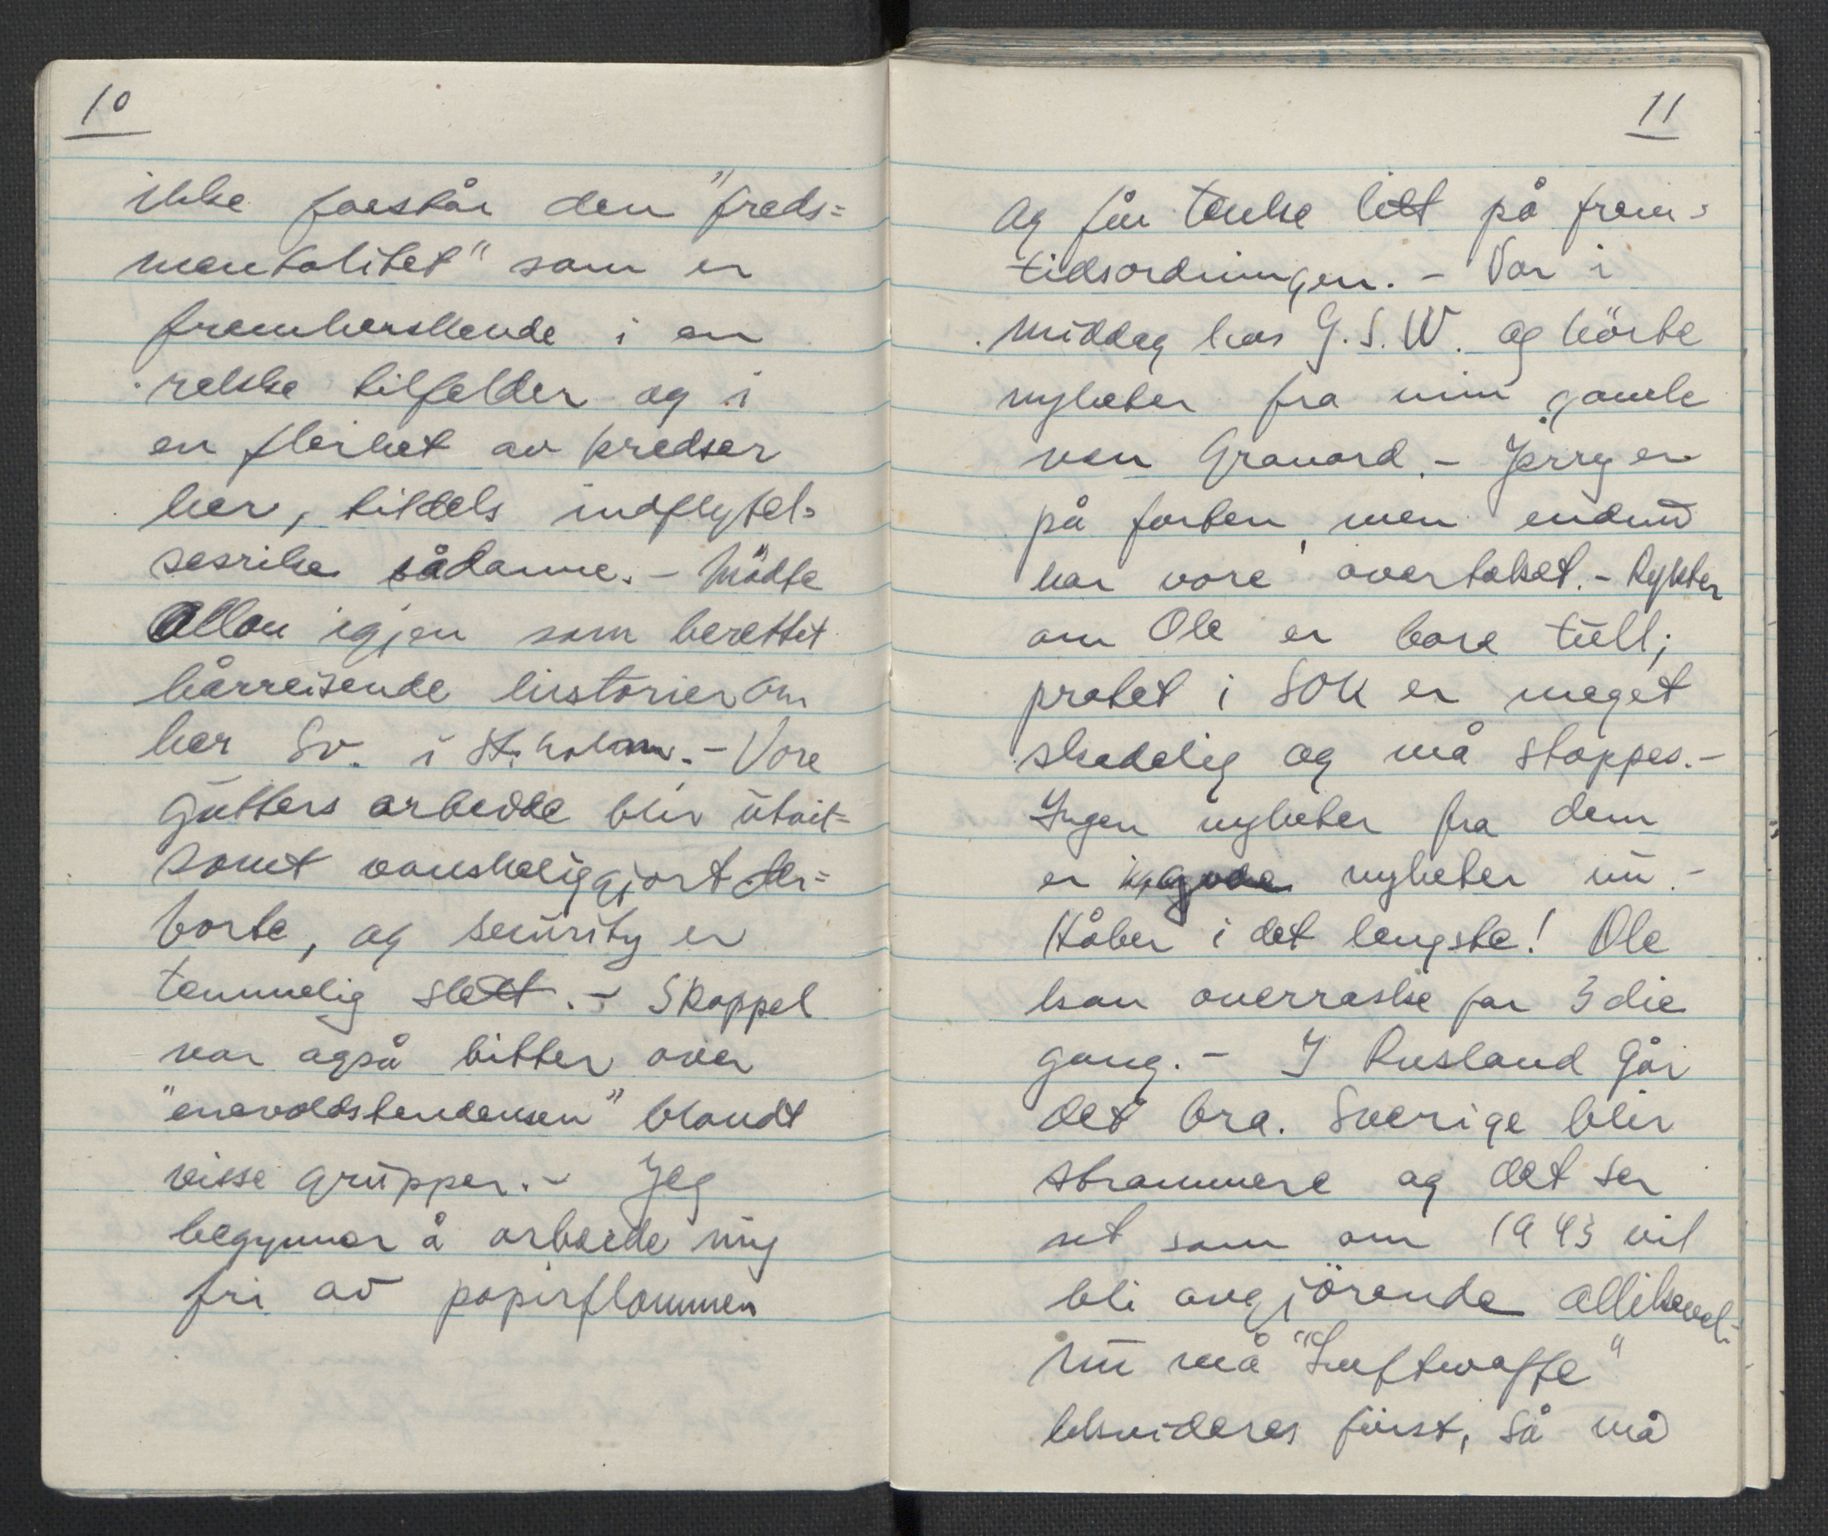 10
ikke forstår den "freds=
mentalitet" som er
fremherskende i en
rekke tilfelder og i
en flerhet av kredser
her, tildels indflytel=
sesrike sådanne. - Mödte
Allan igjen som berettet
hårreisende historier om
her Sv. i St.holm. - Vore
gutters arbeide blir utvit=
somt vanskeliggjort der=
borte, og security er
temmelig slett. - Skappel
var også bitter over
"enevoldstendensen" blandt
visse grupper. - Jeg
begynner å arbeide mig
fri av papirflommen
11
og får tenke litt på frem=
tidsordningen. - Var i
middag hos G.S.W. og hörte
nyheter fra min gamle
ven Granard. - Jerry er
på farten, men endnu
har vore overtaket. - Rykter
om Ole er bare tull;
pratet i SOK er meget
skadelig og må stoppes. -
Ingen nyheter fra dem
er gode nyheter nu. -
Håber i det lengste! Ole
kan overraske for 3die
gang. - I Rusland går
det bra. Sverige blir
strammere og det ser
ut som om 1943 vil
bli avgjörende allikevel;
nu må "Luftwaffe"
likvideres först, så må